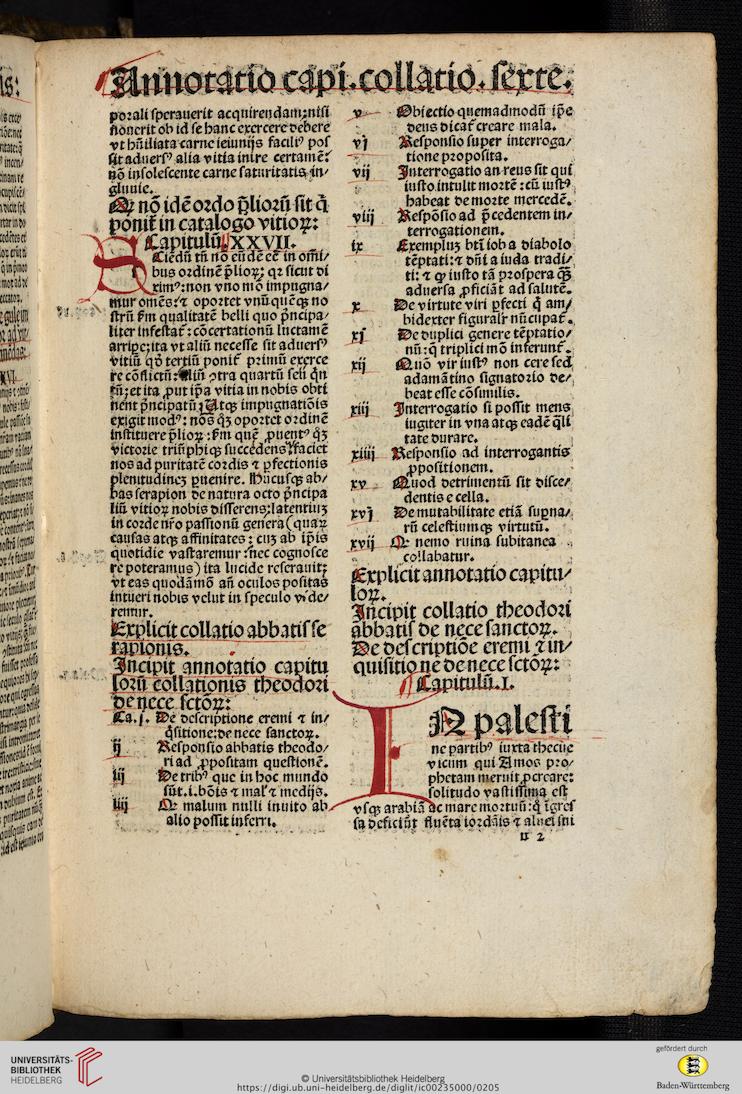 Annotatio capi. collatio. sexte.
porali sperauerit acquirendam: nisi
nouerit ob id se hanc exercere debere
vt hũiliata carne ieiunijs faciliꝰ pos
sit aduersꝰ alia vitia inire certamẽ:
nõ insolescente carne saturitatis in/
gluuie.
Qꝛ nõ idẽ ordo p̃lioꝛũ sit q̃
ponit̃ in catalogo vitioꝝ:
Capitulũ. XXVII.
SCiẽdũ tñ nõ eũdẽ cẽ in om̃i/
bus ordinẽ p̃lioꝝ: qꝛ sicut di
ximꝰ: non vno mõ impugna/
mur omẽs: ⁊ oportet vnũ quẽcꝙ no
strũ ẜm qualitatẽ belli quo p̃ncipa/
liter infestat̃: cõcertationũ luctamẽ
arripe: ita vt aliũ necesse sit aduersꝰ
vitiũ qđ tertiũ ponit̃ primũ exerce
re cõflictũ: aliũ ↄtra quartũ seu qn̄
tũ: et ita ꝓut ip̃a vitia in nobis obti
nent p̃ncipatũ: Atꝙ impugnatiõis
exigit modꝰ: nos q̃ꝫ oportet ordinẽ
instituere p̃lioꝝ: ẜm quẽ ꝓuentꝰ q̃ꝫ
victorie triũphiꝙ succedens faciet
nos ad puritatẽ cordis ⁊ ꝑfectionis
plenitudineꝫ ꝑuenire. Hucusꝙ ab/
bas serapion de natura octo p̃ncipa
liũ vitioꝝ nobis disserens: latentiuꝫ
in corde nr̃o passionũ genera (quaꝝ
causas atꝙ affinitates: cuꝫ ab ip̃is
quotidie vastaremur: nec cognosce
re poteramus) ita lucide reserauit:
vt eas quodãmõ añ oculos positas
intueri nobis velut in speculo vide/
remur.
Explicit collatio abbatis se
rapionis.
Incipit annotatio capitu
loꝛũ collationis theodori
de nece sctõꝝ:
Ca. j. De descriptione eremi ⁊ in/
q̃sitione: de nece sanctoꝝ.
ij Responsio abbatis theodo/
ri ad ꝓpositam questionẽ.
iij De tribꝰ que in hoc mundo
sũt. i. bõis ⁊ mal̃ ⁊ medijs.
iiij Qꝛ malum nulli inuito ab
alio possit inferri.
v Obiectio quemadmodũ ip̃e
deus dicat̃ creare mala.
vj Responsio super interroga/
tione proposita.
vij Interrogatio an reus sit qui
iusto intulit mortẽ: cũ iustꝰ
habeat de morte mercedẽ.
viij Respõsio ad p̃cedentem in/
terrogationem.
ix Exempluꝫ bt̃i iob a diabolo
tẽptati: ⁊ dñi a iuda tradi/
ti: ⁊ ꝙ iusto tã prospera q̃ꝫ
aduersa ꝓficiãt ad salutẽ.
x De virtute viri ꝑfecti q̃ am/
bidexter figuralr̃ nũcupat̃.
xj De duplici genere tẽptatio/
nũ: q̃ triplici mõ inferunt̃.
xij Quõ vir iustꝰ non cere sed
adamãtino signatorio de/
beat esse cõsimilis.
xiij Interrogatio si possit mens
iugiter in vna atꝙ eadẽ q̃li
tate durare.
xiiij Responsio ad interrogantis
ꝓpositionem.
xv Quod detrimentũ sit disce/
dentis e cella.
xvj De mutabilitate etiã supna/
rũ celestiumꝙ virtutũ.
xvij Qꝛ nemo ruina subitanea
collabatur.
Explicit annotatio capitu/
loꝝ.
Incipit collatio theodori
abbatis de nece sanctoꝝ.
De descriptiõe eremi ⁊ in/
quisitione de nece sctõꝝ:
Capitulũ. I.
IN palesti
ne partibꝰ iuxta thecue
vicum qui Amos pro/
phetam meruit ꝓcreare:
solitudo vastissima est
vsꝙ arabiã ac mare mortuũ: q̃ ingres
sa deficiũt fluẽta iordãis ⁊ aluei sui
n 2
UNIVERSITÄTS-
BIBLIOTHEK
HEIDELBERG
© Universitätsbibliothek Heidelberg
https://digi.ub.uni-heidelberg.de/diglit/ic00235000/0205
gefördert durch
Baden-Württemberg